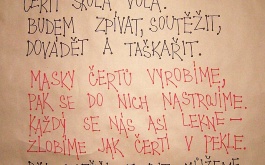 ČERTÍ ŠKOLA VOLÁ.
BUDEM ZPÍVAT, SOUTĚŽIT,
DOVÁDĚT A TAŠKAŘIT.
MASKY ČERTŮ VYROBÍME,
PAK SE DO NICH NASTROJÍME.
KAŽDÝ SE NÁS ASI LEKNE –
ZLOBÍME JAK ČERTI V PEKLE.